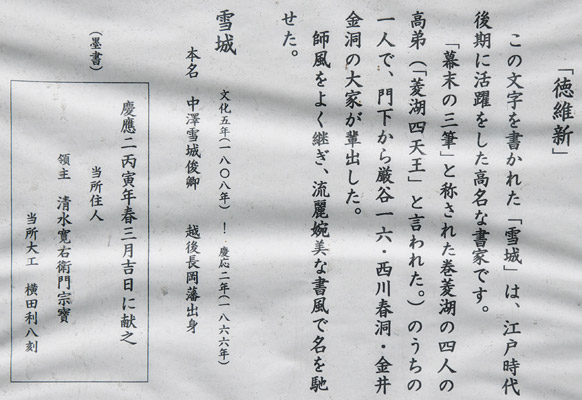 「徳維新」
この文字を書かれた「雪城」は、江戸時代
後期に活躍をした高名な書家です。
「幕末の三筆」と称された巻菱湖の四人の
高弟（「菱湖四天王」と言われた。）のうちの
一人で、門下から厳谷一六・西川春洞・金井
金洞の大家が輩出した。
師風をよく継ぎ、流麗婉美な書風で名を馳
せた。
雪城
文化五年(一八〇八年)！慶応二年(一八六六年)
本名　中澤雪城俊卿　越後長岡藩出身
（墨書）
慶應二丙寅年春三月吉日に献之
当所住人
領主　清水寛右衛門宗寶
当所大工　横田利八刻